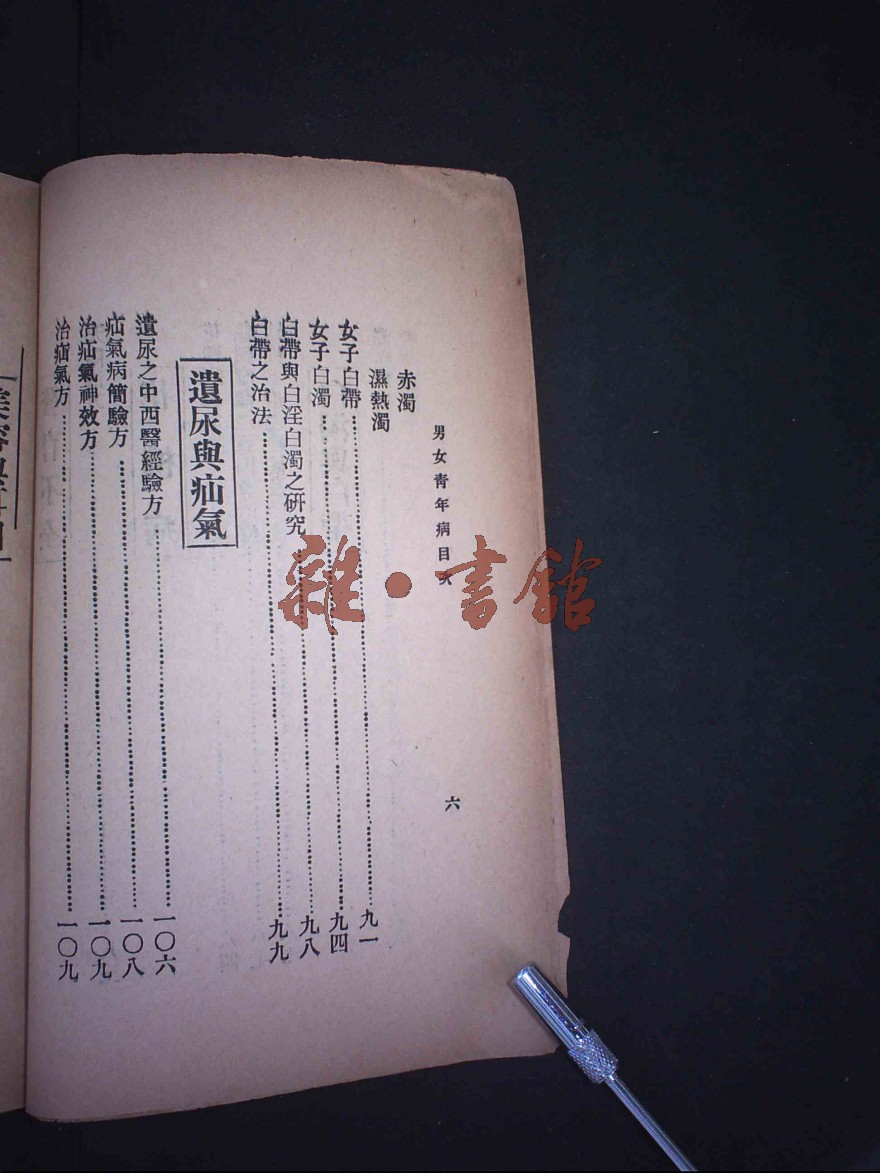 男女青年病目次
六
赤濁
濕熱濁
女子白帶……九一
女子白濁……九四
白帶與白淫白濁之研究……九八
白帶之治法……九九
遺尿與疝氣
遺尿之中西醫經驗方……一〇六
疝氣病簡驗方……一〇八
治疝氣神效方……一〇九
治疝氣方……一〇九
雜·書館